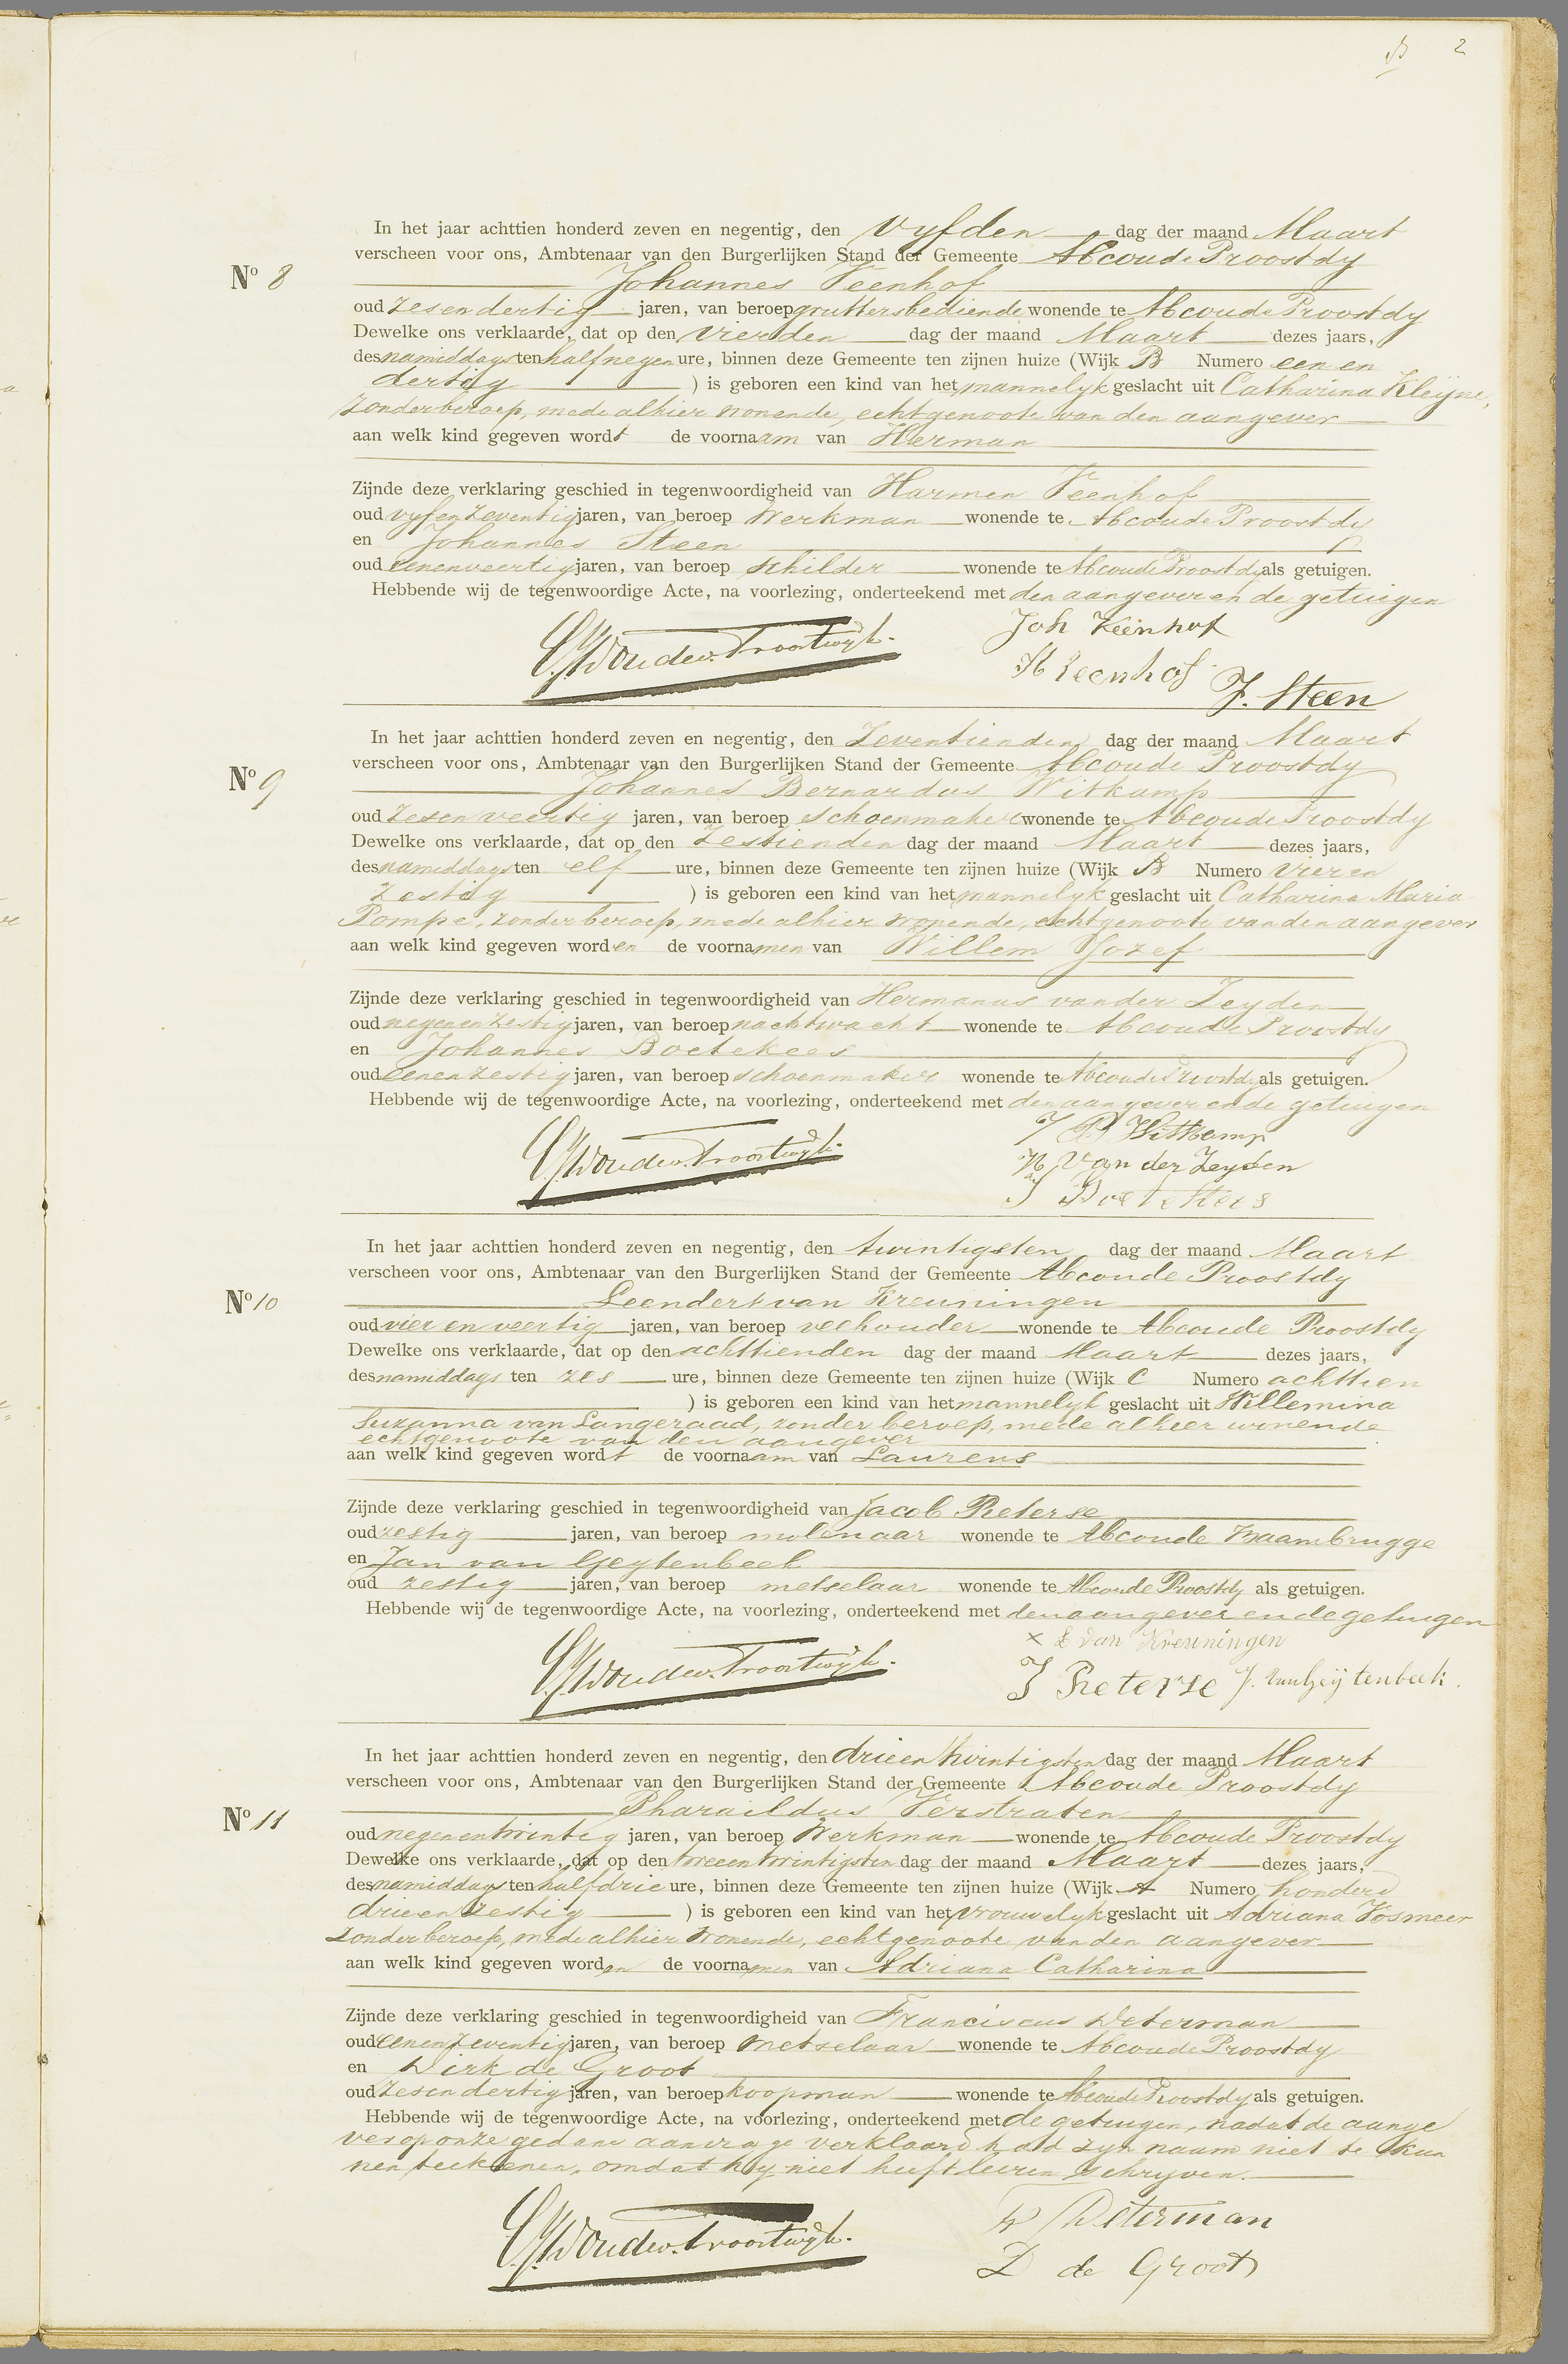 2
In het jaar achttien honderd zeven en negentig, den vyfden dag der maand Maart
verscheen voor ons, Ambtenaar van den Burgerlijken Stand der Gemeente Abcoude Proostdy
No 8
Johannes Veenhof
oud zesendertig jaren, van beroep gruttersbediende wonende te Abcoude Proostdy
Dewelke ons verklaarde, dat op den vierden dag der maand Maart dezes jaars,
des namiddags ten half negen ure, binnen deze Gemeente ten zijnen huize (Wijk B Numero een en
dertig ) is geboren een kind van het mannelyk geslacht uit Catharina Kleijne,
zonder beroep, mede alhier wonende, echtgenoote van den aangever
aan welk kind gegeven wordt de voornaam van Herman
Zijnde deze verklaring geschied in tegenwoordigheid van Harmen Veenhof
oud vyfenzeventig jaren, van beroep Werkman wonende te Abcoude Proostdy
en Johannes Steen
oud eenenveertig jaren, van beroep schilder wonende te Abcoude Proostdy als getuigen.
Hebbende wij de tegenwoordige Acte, na voorlezing, onderteekend met den aangever en de getuigen
Joh Veenhof
H Veenhof
J. Steen
In het jaar achttien honderd zeven en negentig, den zeventienden dag der maand Maart
verscheen voor ons, Ambtenaar van den Burgerlijken Stand der Gemeente Abcoude Proostdy
No 9
Johannes Bernardus Witkamp
oud zesenveertig jaren, van beroep schoenmaker wonende te Abcoude Proostdy
Dewelke ons verklaarde, dat op den zestienden dag der maand Maart dezes jaars,
des namiddags ten elf ure, binnen deze Gemeente ten zijnen huize (Wijk B Numero vier en
zestig ) is geboren een kind van het mannelyk geslacht uit Catharina Maria
Pompe, zonder beroep, mede alhier wonende, echtgenoote van den aangever
aan welk kind gegeven worden de voornamen van Willem Jozef
Zijnde deze verklaring geschied in tegenwoordigheid van Hermanus van der Zeyden
oud negenenzestig jaren, van beroep nachtwacht wonende te Abcoude Proostdy
en Johannes Boetekees
oud eenenzestig jaren, van beroep schoenmaker wonende te Abcoude Proostdy als getuigen.
Hebbende wij de tegenwoordige Acte, na voorlezing, onderteekend met den aangever en de getuigen
J B Witkamp
H Van der Zeyden
J Boetekees
In het jaar achttien honderd zeven en negentig, den twintigsten dag der maand Maart
verscheen voor ons, Ambtenaar van den Burgerlijken Stand der Gemeente Abcoude Proostdy
No 10
Leendert van Kreuningen
oud vier en veertig jaren, van beroep veehouder wonende te Abcoude Proostdy
Dewelke ons verklaarde, dat op den achttienden dag der maand Maart dezes jaars,
des namiddags ten zes ure, binnen deze Gemeente ten zijnen huize (Wijk C Numero achttien
) is geboren een kind van het mannelyk geslacht uit Willemina
Suzanna van Langeraad, zonder beroep, mede alhier wonende
echtgenoote van den aangever
aan welk kind gegeven wordt de voornaam van Laurens
Zijnde deze verklaring geschied in tegenwoordigheid van Jacob Pieterse
oud zestig jaren, van beroep molenaar wonende te Abcoude Baambrugge
en Jan van Geytenbeek
oud zestig jaren, van beroep metselaar wonende te Abcoude Proostdy als getuigen.
Hebbende wij de tegenwoordige Acte, na voorlezing, onderteekend met den aangever en de getuigen
x L van Kreuningen
J Pieterse J. van Geijtenbeek.
In het jaar achttien honderd zeven en negentig, den drieentwintigsten dag der maand Maart
verscheen voor ons, Ambtenaar van den Burgerlijken Stand der Gemeente Abcoude Proostdy
No 11
Pharaildus Verstraten
oud negenentwintig jaren, van beroep Werkman wonende te Abcoude Proostdy
Dewelke ons verklaarde, dat op den tweeentwintigsten dag der maand Maart dezes jaars,
des namiddags ten half drie ure, binnen deze Gemeente ten zijnen huize (Wijk A Numero honderd
drieenzestig ) is geboren een kind van het vrouwelyk geslacht uit Adriana Vosmeer
zonder beroep, mede alhier wonende, echtgenoote van den aangever
aan welk kind gegeven worden de voornamen van Adriana Catharina
Zijnde deze verklaring geschied in tegenwoordigheid van Franciscus Determan
oud eenenzeventig jaren, van beroep metselaar wonende te Abcoude Proostdy
en Dirk de Groot
oud zesendertig jaren, van beroep koopman wonende te Abcoude Proostdy als getuigen.
Hebbende wij de tegenwoordige Acte, na voorlezing, onderteekend met de getuigen, nadat de aange
ver op onze gedane aanvrage verklaard had zyn naam niet te kun
nen teekenen, omdat hy niet heeft leeren schryven.
F Determan
D de Groot